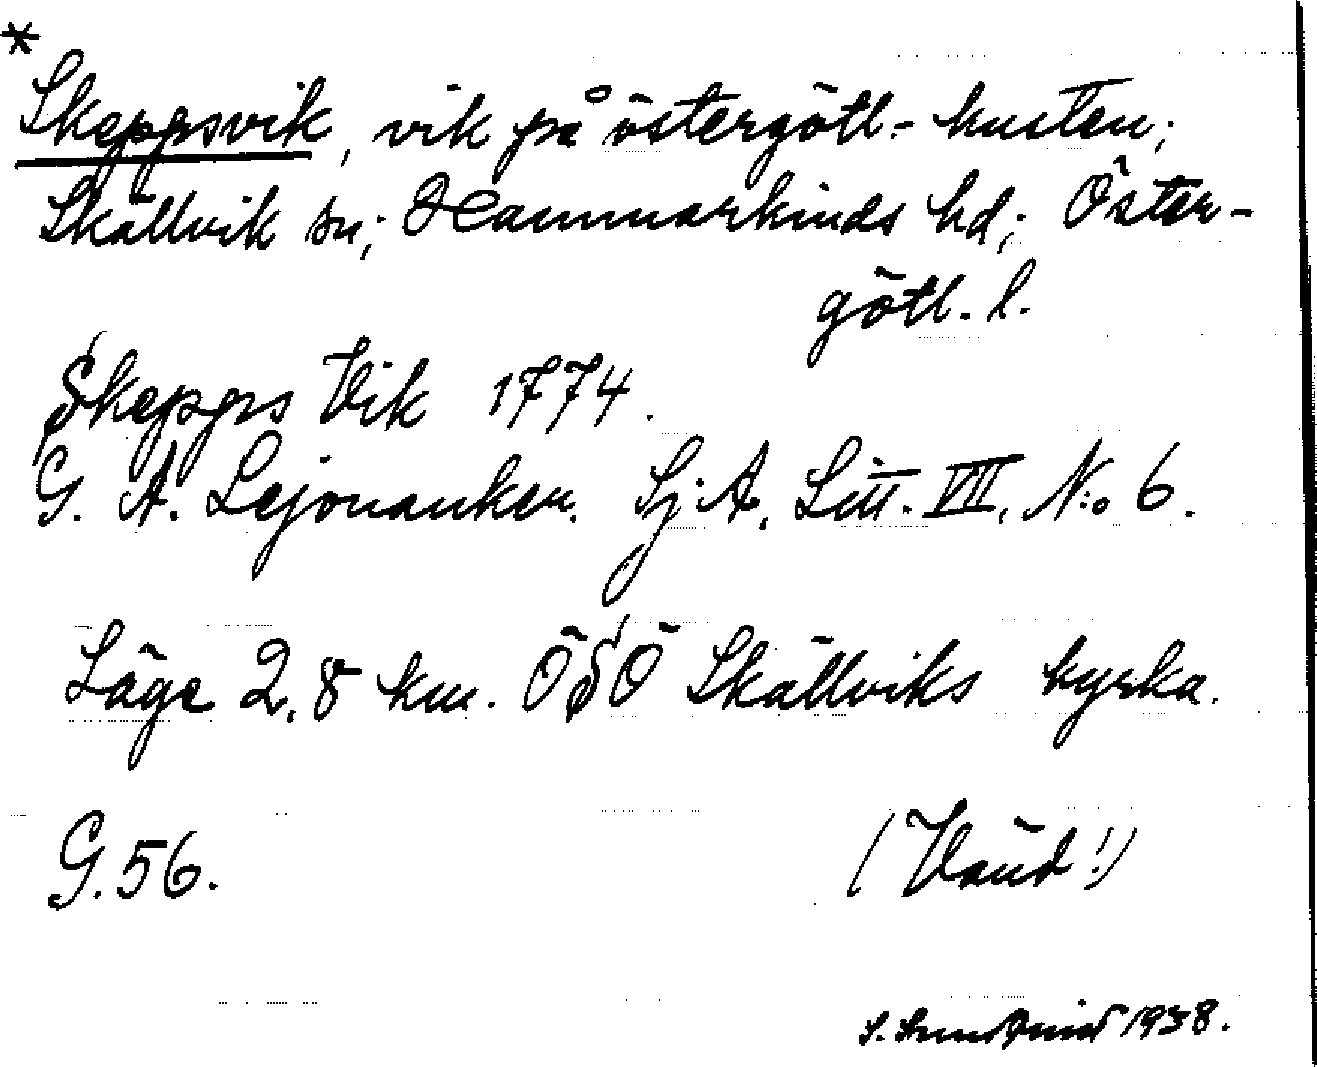 *
Skeppsvik, vik på östergötl.-kusten;
Skällvik sn; Hammarkinds hd; Öster-
götl. l.
Skepps Vik 1774.
G. A. Lejonanker. Sj. A. Litt. VII. N:o 6.
Läge 2,8 km. ÖSÖ Skällviks kyrka.
G. 56.
(Vänd!)
S. 1938.